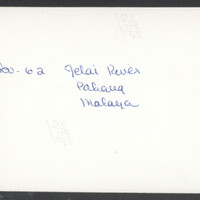 Nov-62 Jelai River
Pahang
Malaya